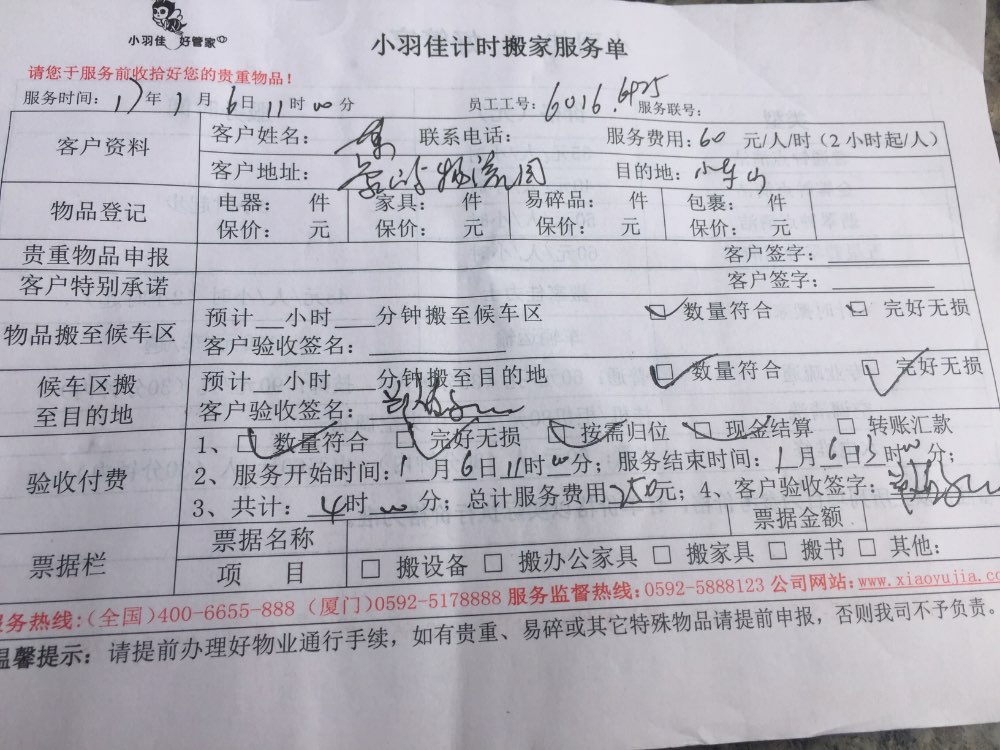 小羽佳 好管家
小羽佳计时搬家服务单
请您于服务前收拾好您的贵重物品！
服务时间：17年1月6日11时00分 员工工号：6016.6925 服务联号：
客户资料 客户姓名： 联系电话： 服务费用：60 元/人/时（2小时起/人）
客户地址： 物流园 目的地：小东山
物品登记 电器： 件 家具： 件 易碎品： 件 包裹： 件
保价： 元 保价： 元 保价： 元 保价： 元
贵重物品申报 客户签字：
客户特别承诺 客户签字：
物品搬至候车区 预计__小时___分钟搬至候车区 ☑ 数量符合 □ 完好无损
客户验收签名：
候车区搬至目的地 预计__小时___分钟搬至目的地 ☑ 数量符合 ☑ 完好无损
客户验收签名：
验收付费 1、☑ 数量符合 ☑ 完好无损 ☑ 按需归位 ☑ 现金结算 □ 转账汇款
2、服务开始时间：1月6日11时00分；服务结束时间：1月6日13时00分；
3、共计：4时00分；总计服务费用250元；4、客户验收签字：
票据栏 票据名称 票据金额
项 目 □ 搬设备 □ 搬办公家具 □ 搬家具 □ 搬书 □ 其他：
服务热线：(全国)400-6655-888 (厦门)0592-5178888 服务监督热线：0592-5888123 公司网站：www.xiaoyujia.co
温馨提示：请提前办理好物业通行手续，如有贵重、易碎或其它特殊物品请提前申报，否则我司不予负责。